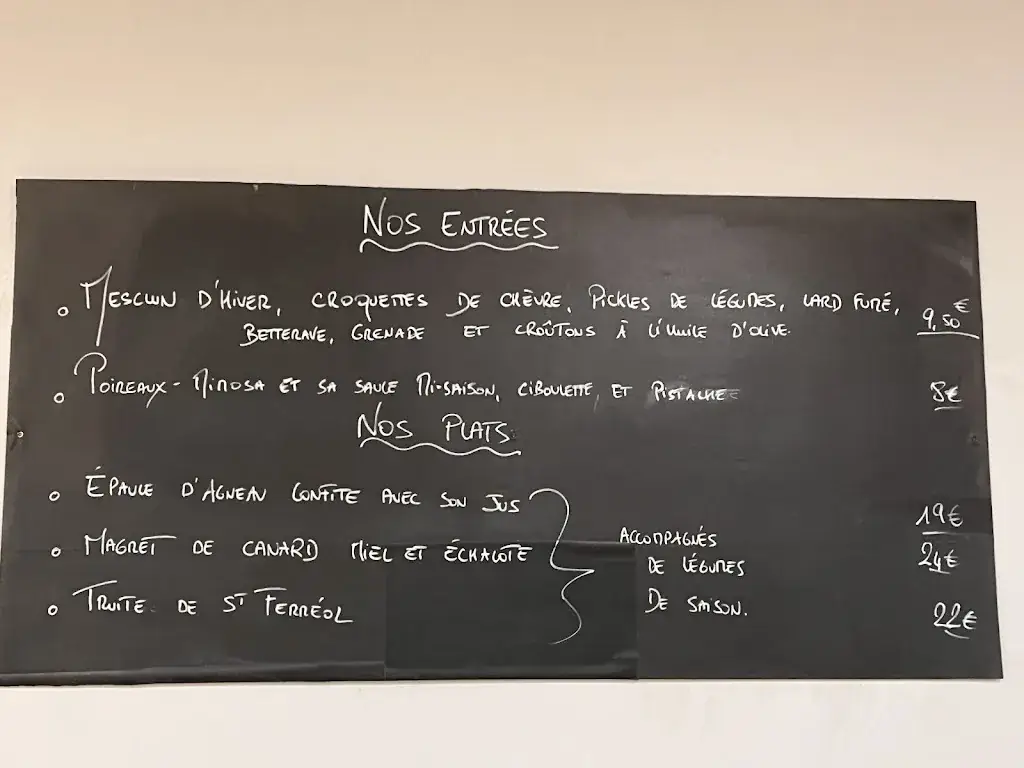 NOS ENTRÉES
MESCLUN D'HIVER, CROQUETTES DE CHÈVRE, PICKLES DE LÉGUMES, LARD FUMÉ, 9,50 €
BETTERAVE, GRENADE ET CROÛTONS À L'HUILE D'OLIVE.
POIREAUX - MIMOSA ET SA SAUCE MI-SAISON, CIBOULETTE, ET PISTACHE 8€
NOS PLATS
ÉPAULE D'AGNEAU CONFITE AVEC SON JUS 19€
MAGRET DE CANARD MIEL ET ÉCHALOTE 24€
TRUITE DE ST FERRÉOL 22€
ACCOMPAGNÉS
DE LÉGUMES
DE SAISON.